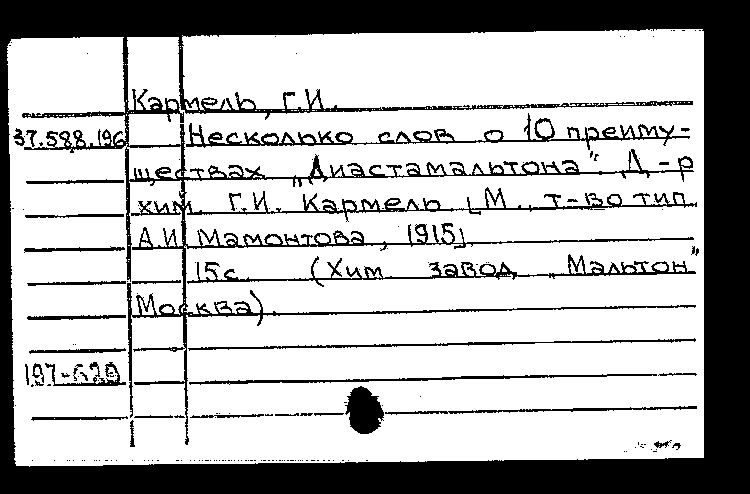 Кармель, Г.И.
37.588.196 Несколько слов о 10 преиму-
ществах „Диастамальтона“. Д-р
хим. Г.И. Кармель. [М., т-во тип.
А.И. Мамонтова, 1915]
15 с. (Хим. завод „Мальтон”
Москва).
197-629